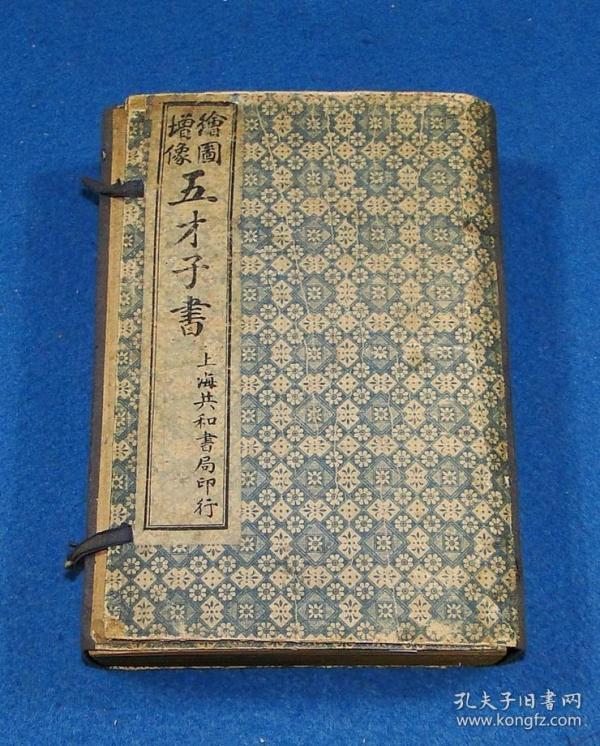 繪圖
增像
五才子書
上海共和書局印行
孔夫子旧书网
www.kongfz.com